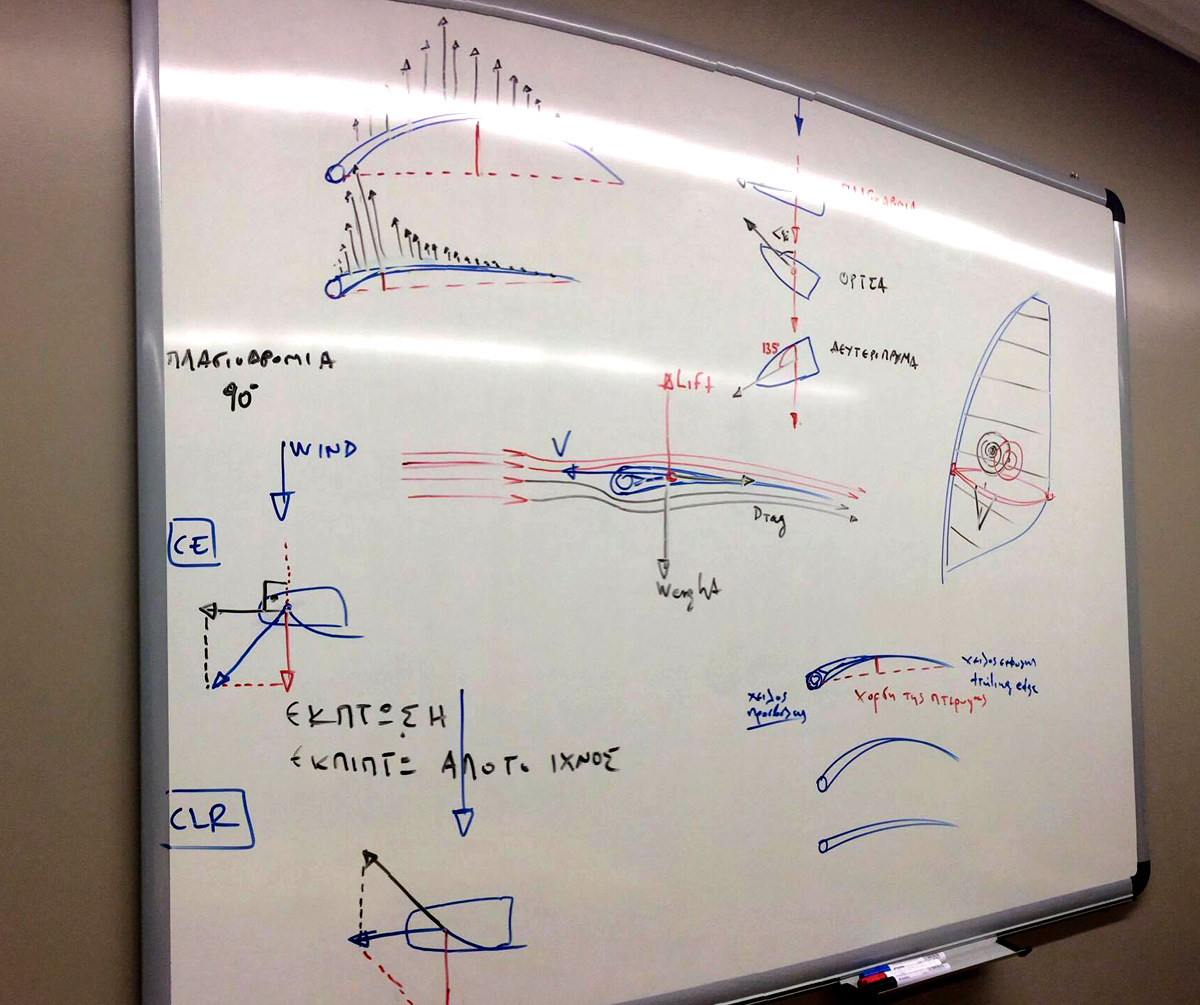 ΠΛΑΓΙΟΔΡΟΜΙΑ
ΟΡΤΣΑ
135
ΔΕΥΤΕΡΟΠΡΥΜΑ
ΠΛΑΓΙΟΔΡΟΜΙΑ
90°
WIND
Lift
V
Drag
Weight
CE
ΕΚΠΤΩΣΗ
ΕΚΠΙΠΤΩ ΑΠΟ ΤΟ ΙΧΝΟΣ
CLR
χείλος εκφυγής
trailing edge
χείλος
προσβολής
χορδή της πτέρυγας